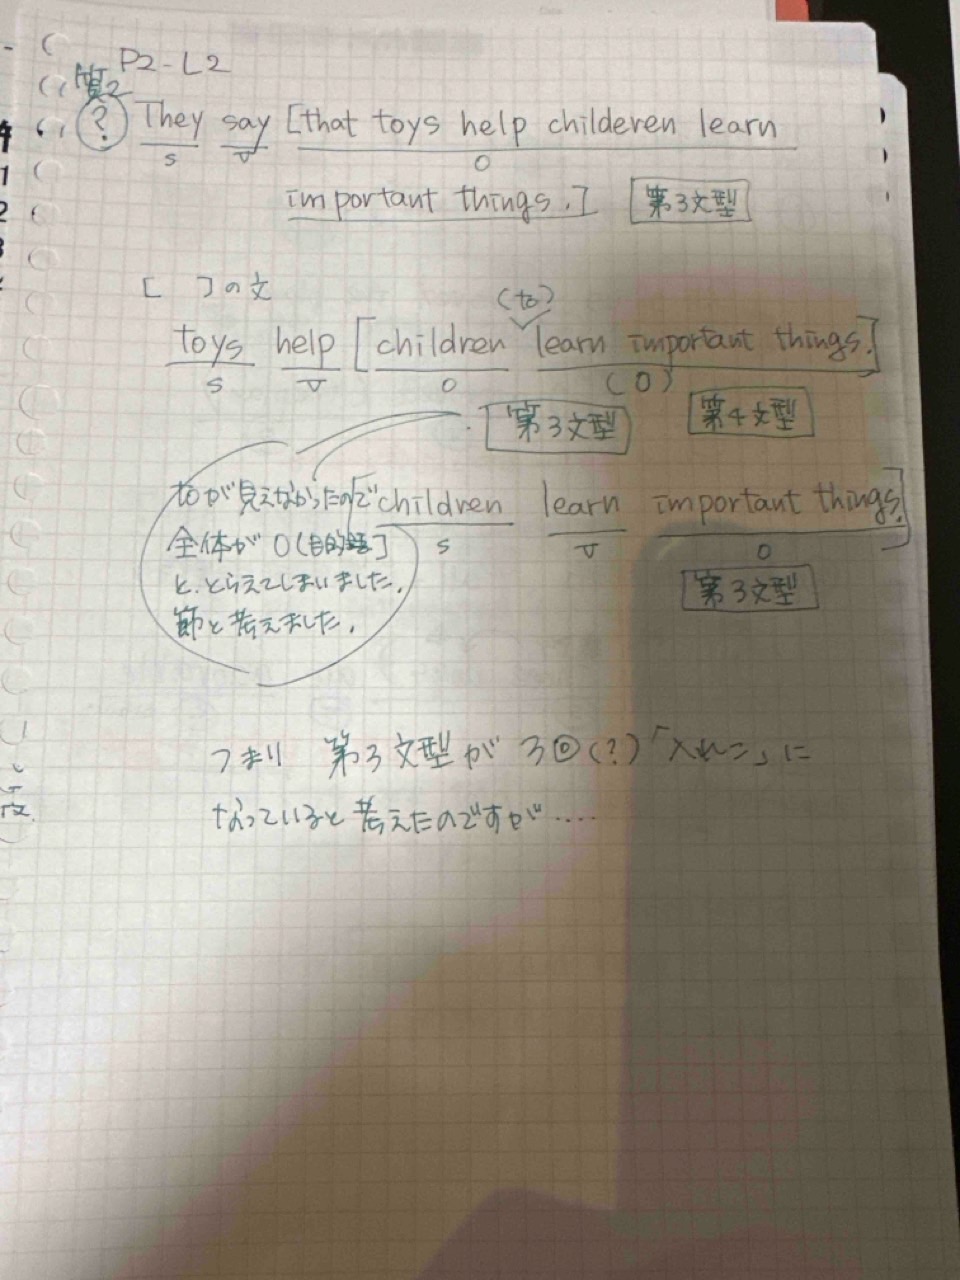 P2-L2
質2
? They say [that toys help childeren learn
S V O
important things.] 第3文型
[ ]の文
(to)
toys help [children learn important things.]
S V O (O)
第3文型 第4文型
toが見えなかったので
children learn important things]
全体がO(目的語]
S V O
と、とらえてしまいました。
第3文型
節と考えました。
つまり 第3文型が 3回(?)「入れこ」に
なっていると考えたのですが....